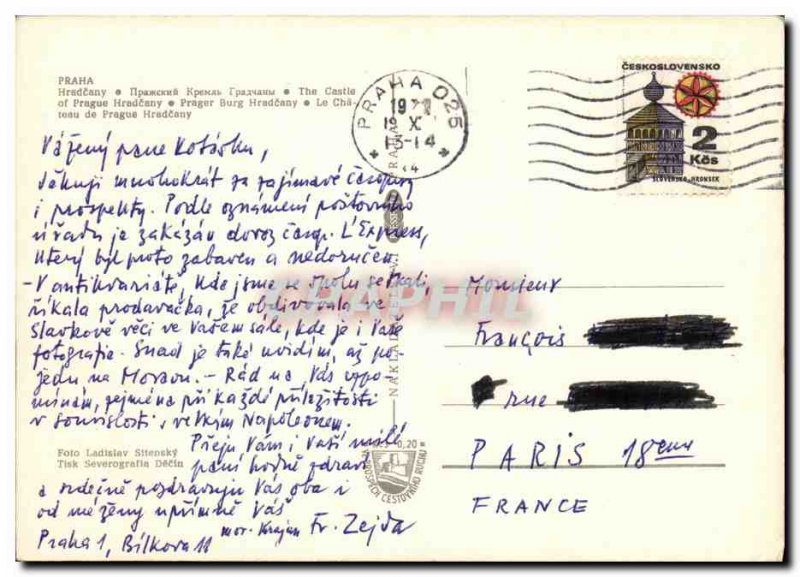 PRAHA
Hradčany • Пражский Кремль Градчаны • The Castle
of Prague Hradčany • Prager Burg Hradčany • Le Châ-
teau de Prague Hradčany
Vážený pane Kotásku,
děkuji mnohokrát za zajímavé časopisy
i prospekty. Podle oznámení poštovního
úřadu je zakázán dovoz časop. L'Express,
který byl proto zabaven a nedoručen.
- V antikvariátě, kde jsme se spolu setkali,
říkala prodavačka, že obdivovala ve
Slavkově věci ve Vašem sále, kde je i Vaše
fotografie. Snad je také uvidím, až po-
jedu na Moravu. - Rád na Vás vzpo-
mínám, zejména při každé příležitosti
v souvislosti s velkým Napoleonem.
Přeji Vám i Vaší milé
paní hodně zdraví
a srdečně pozdravuji Vás oba i
od mé ženy upřímně Váš
mor. krajan Fr. Zejda
Praha 1, Bílkova 11
Foto Ladislav Sitenský
Tisk Severografia Děčín
0,20
VE PROSPĚCH CESTOVNÍHO RUCHU
PRAHA 025
19
X
-14
ČESKOSLOVENSKO
2
Kčs
SLOVENSKO - HRONSEK
Monsieur
François
rue
PARIS 18eme
FRANCE
CPAPHIL